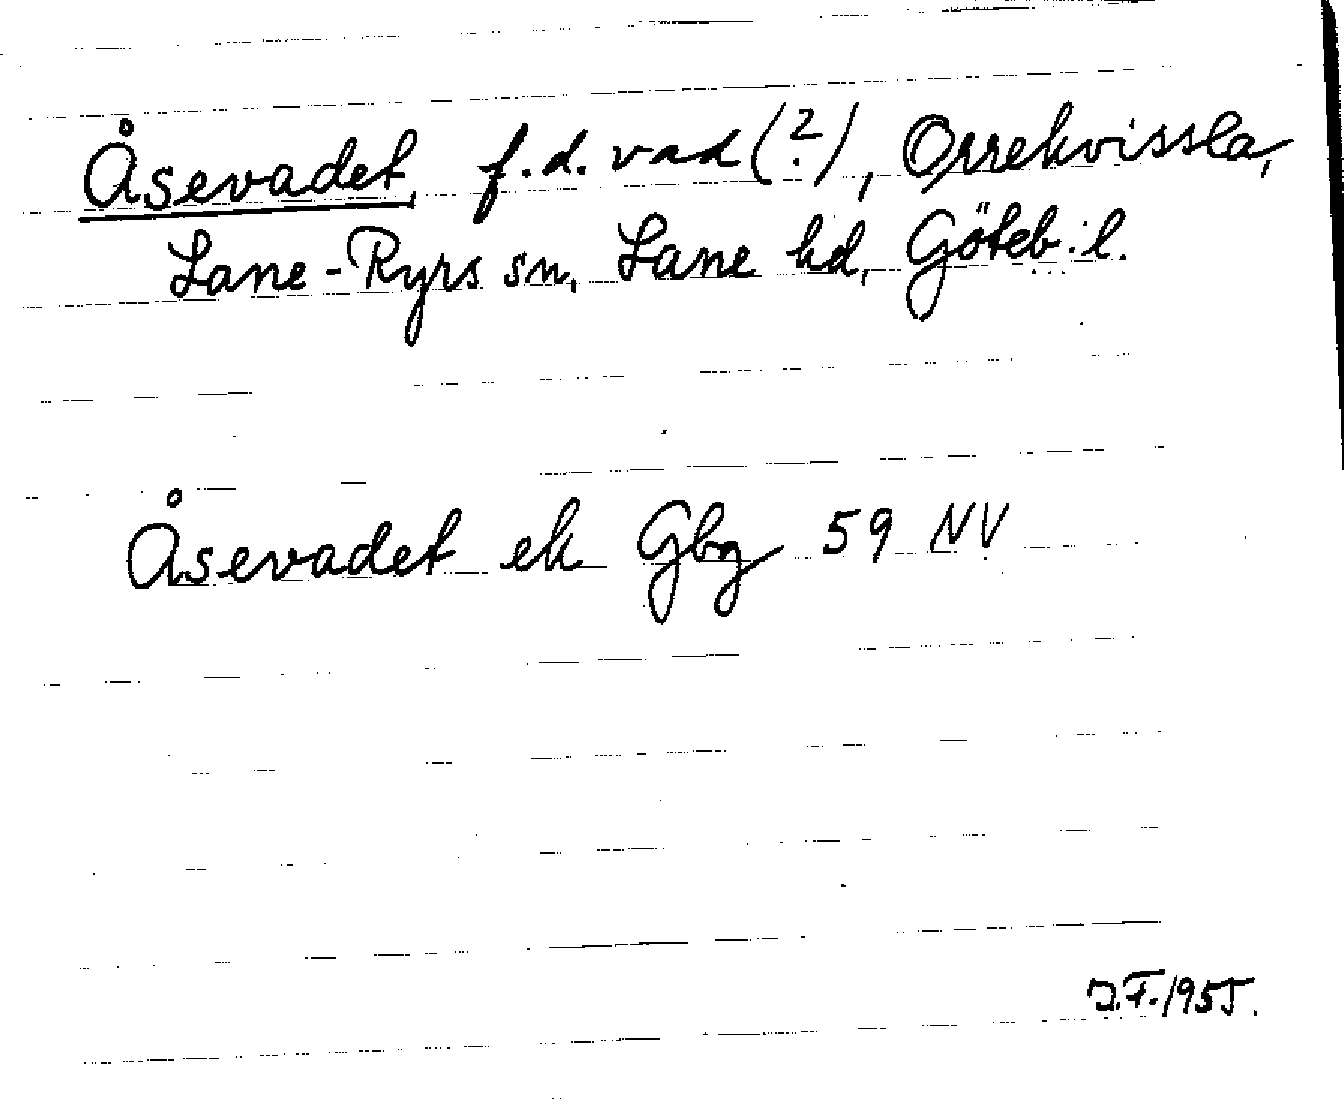 Åsevadet, f.d. vad (?), Orrekvissla,
Lane-Ryrs sn, Lane hd, Göteb.l.
Åsevadet ek Gbg 59 NV
J.F. 1955.